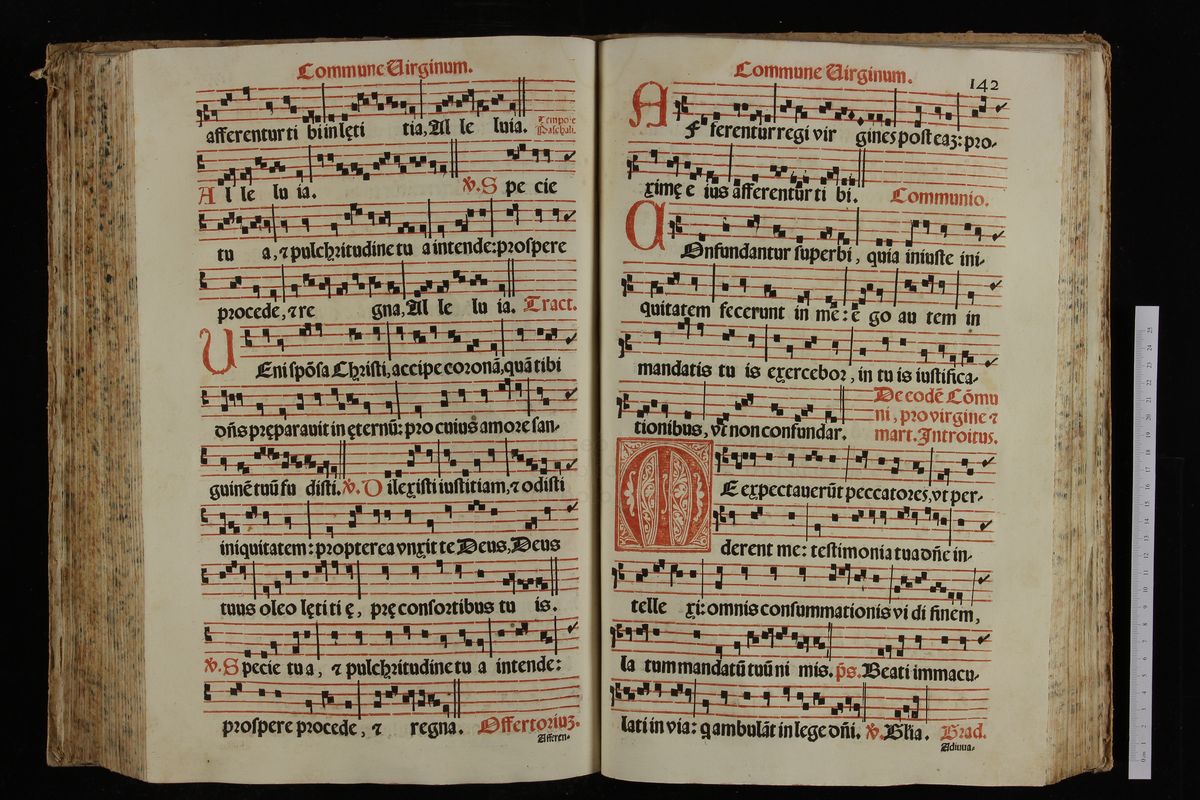 Commune Uirginum.
afferentur ti bi in lęti tia, Al le luia. Tempore
Paschali.
A l le lu ia. ℣. S pe cie
tu a, ⁊ pulchritudine tu a intende: prospere
procede, ⁊ re gna, Al le lu ia. Tract.
U Eni spõsa Christi, accipe coronã, quã tibi
dñs pręparauit in ęternũ: pro cuius amore san-
guinẽ tuũ fu disti. ℣. D ilexisti iustitiam, ⁊ odisti
iniquitatem: propterea vnxit te Deus, Deus
tuus oleo lęti ti ę, prę consortibus tu is.
℣. S pecie tu a, ⁊ pulchritudine tu a intende:
prospere procede, ⁊ regna. Offertoriuꝫ.
Afferen-
Commune Uirginum.
142
A F ferentur regi vir gines post eaꝫ: pro-
ximę e ius afferentur ti bi. Communio.
C Onfundantur superbi, quia iniuste ini-
quitatem fecerunt in me: e go au tem in
mandatis tu is exercebor, in tu is iustifica-
tionibus, vt non confundar.
De eodẽ Cõmu
ni, pro virgine ⁊
mart. Introitus.
M E expectauerũt peccatores, vt per-
derent me: testimonia tua dñe in-
telle xi: omnis consummationis vi di finem,
la tum mandatũ tuũ ni mis. p̃s. Beati immacu-
lati in via: q ambulãt in lege dñi. ℣. Gl̃ia. Grad.
Adiuua-